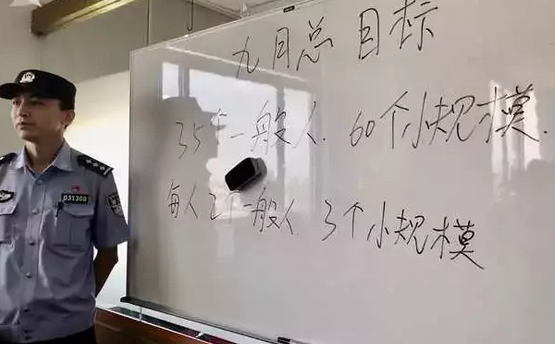 九月总目标
35个一般人. 60个小规模.
每人2个一般人 3个小规模
031308